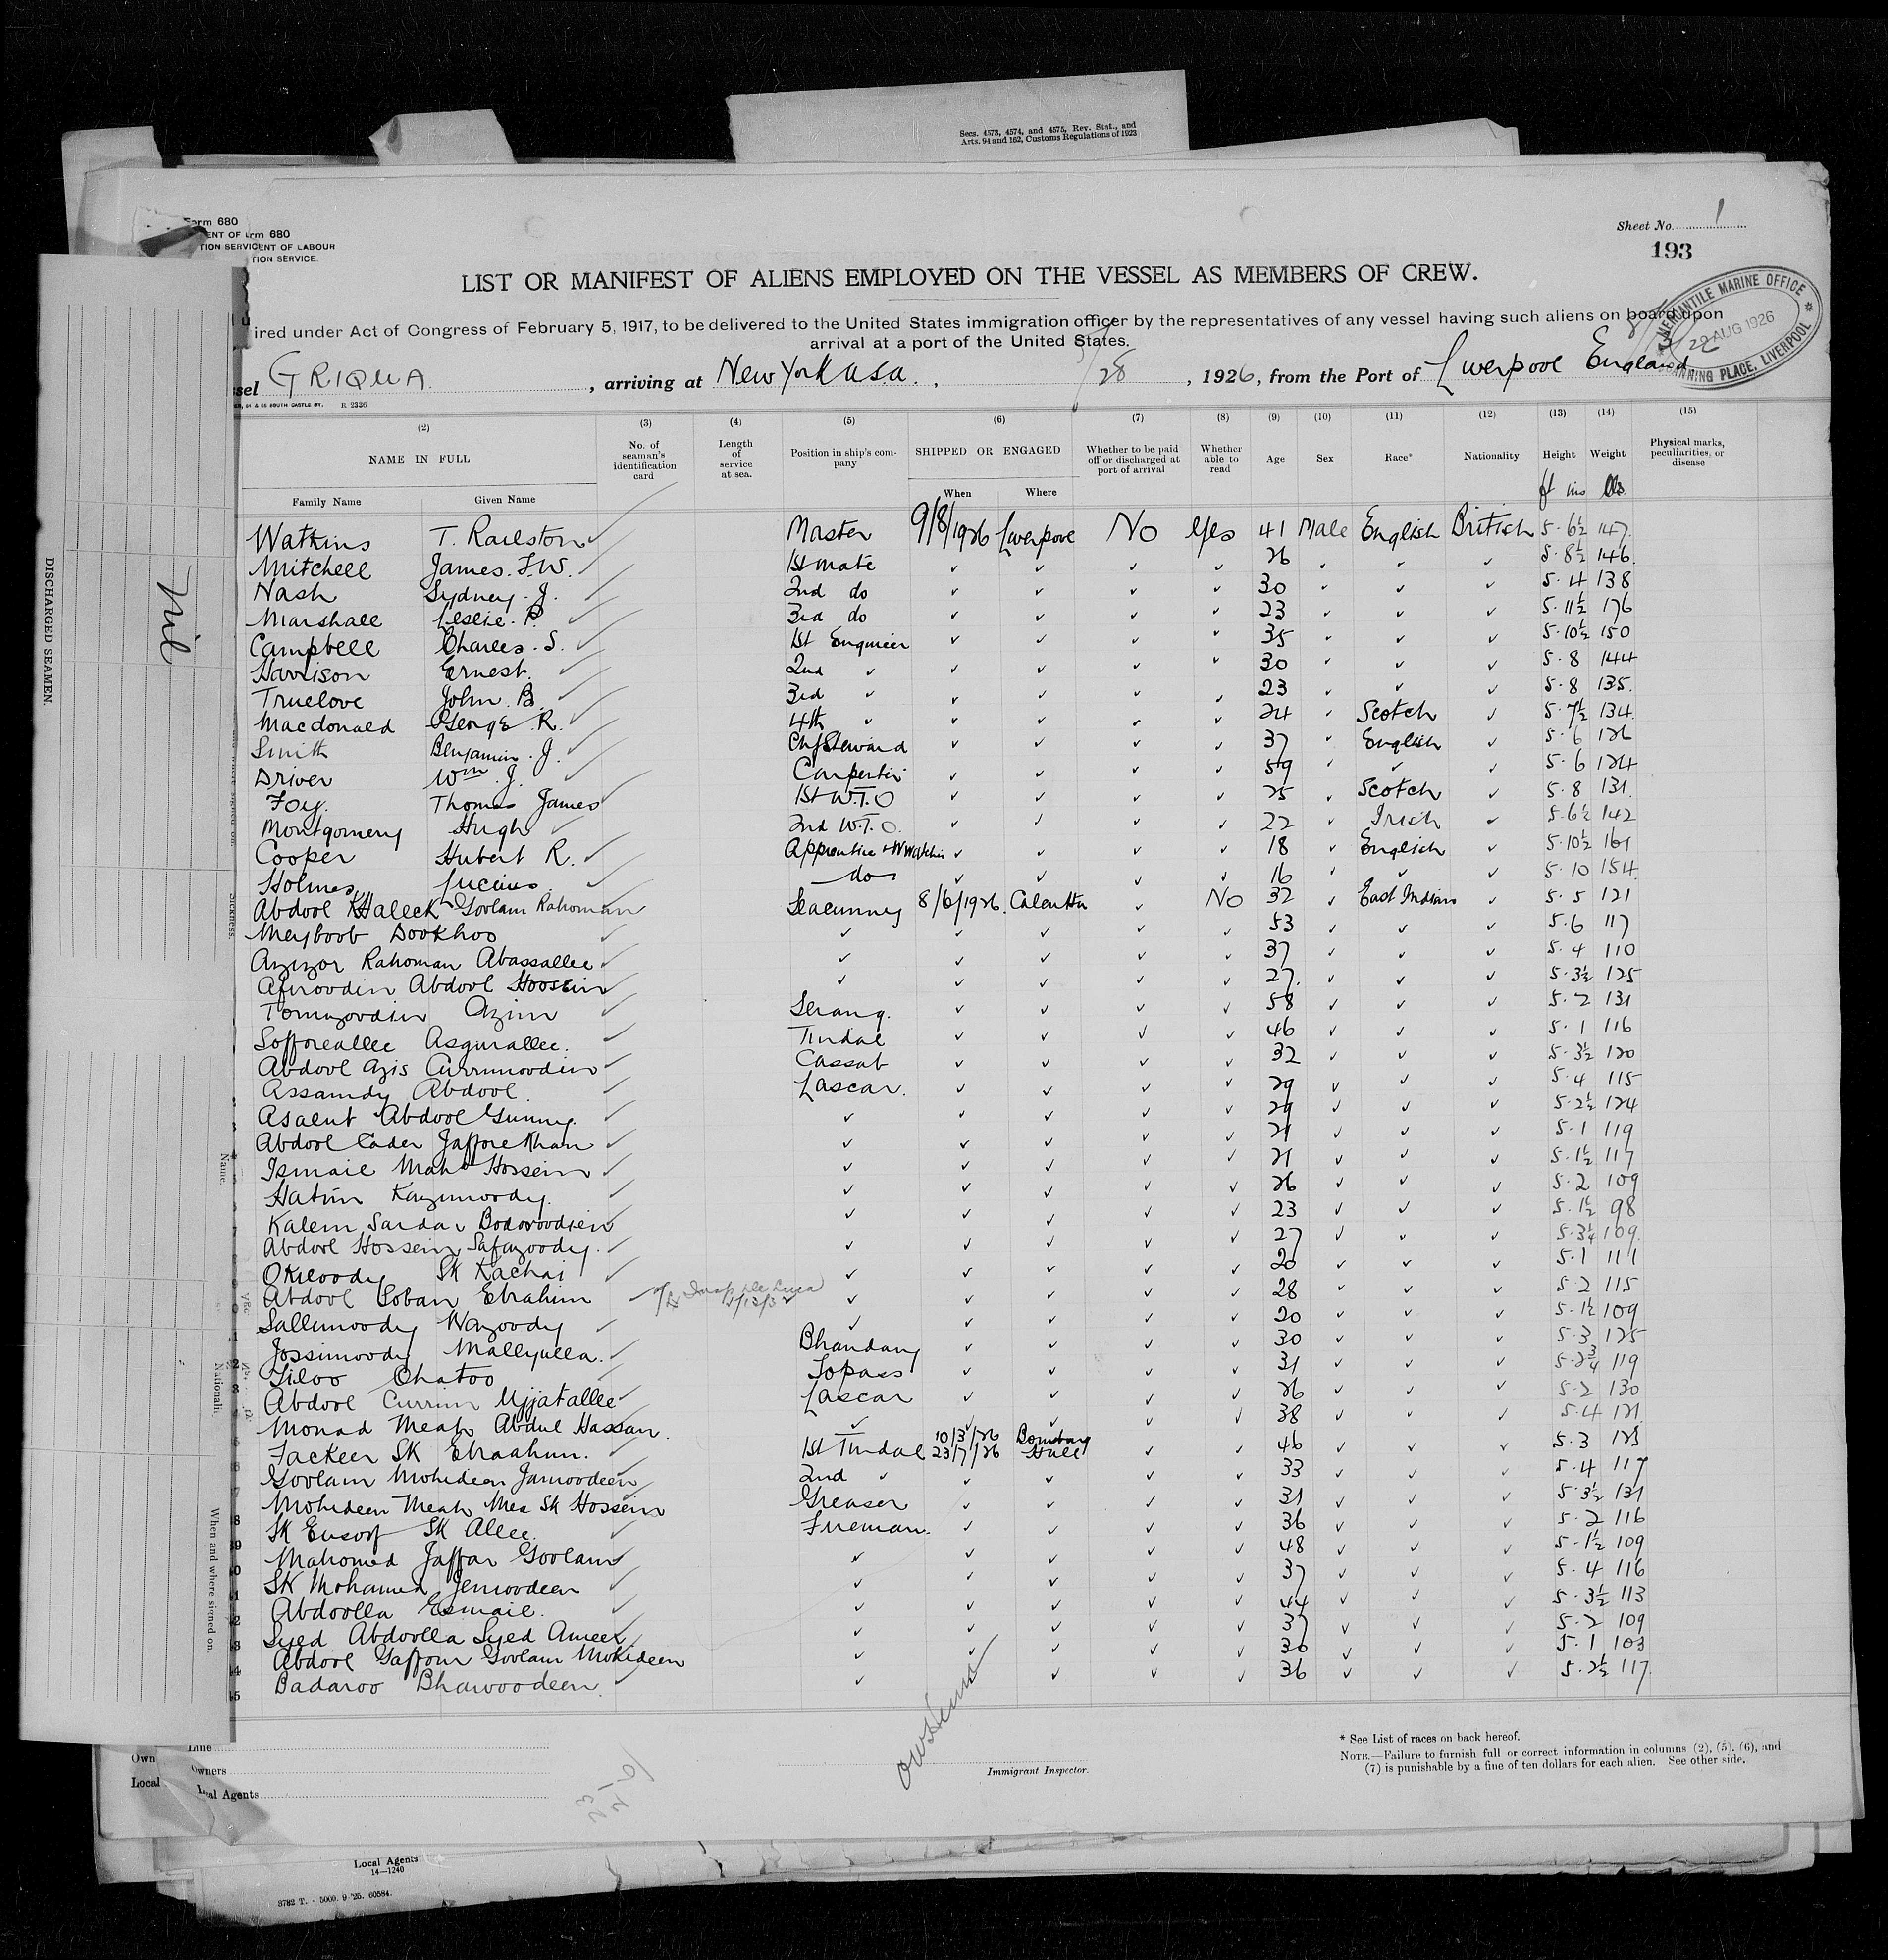 Secs. 4573, 4574, and 4575, Rev. Stat., and
Arts. 94 and 162, Customs Regulations of 1923
Form 680
ENT OF orm 680
TION SERVICENT OF LABOUR
TION SERVICE.
Sheet No. 1
193
LIST OR MANIFEST OF ALIENS EMPLOYED ON THE VESSEL AS MEMBERS OF CREW.
MERCANTILE MARINE OFFICE
22 AUG 1926
CANNING PLACE, LIVERPOOL
ired under Act of Congress of February 5, 1917, to be delivered to the United States immigration officer by the representatives of any vessel having such aliens on board upon
arrival at a port of the United States.
sel GRIQUA, arriving at New York U.S.A., 28, 1926, from the Port of Liverpool England
R 2336
(2) (3) (4) (5) (6) (7) (8) (9) (10) (11) (12) (13) (14) (15)
NAME IN FULL No. of seaman's identification card Length of service at sea. Position in ship's company SHIPPED OR ENGAGED Whether to be paid off or discharged at port of arrival Whether able to read Age Sex Race* Nationality Height Weight Physical marks, peculiarities, or disease
Family Name Given Name When Where ft ins lbs.
Watkins T. Railston Master 9/8/1926 Liverpool No Yes 41 Male English British 5.6½ 147
Mitchell James. F.W. 1st mate 26 5.8½ 146
Nash Sydney. J. 2nd do 30 5.4 138
Marshall Leslie. P. 3rd do 23 5.11½ 176
Campbell Charles. S. 1st Engineer 35 5.10½ 150
Harrison Ernest. 2nd 30 5.8 144
Truelove John. B. 3rd 23 5.8 135.
Macdonald George. R. 4th 24 Scotch 5.7½ 134
Smith Benjamin. J. Chf Steward 37 English 5.6 126
Driver Wm J. Carpenter 59 5.6 124
Foy. Thomas James 1st W.T.O 25 Scotch 5.8 131
Montgomery Hugh 2nd W.T.O. 22 Irish 5.6½ 142
Cooper Hubert R. Apprentice 18 English 5.10½ 161
Holmes Lucius do 16 5.10 154
Abdool Khaleck Goolam Rahoman Seacunny 8/6/1926. Calcutta No 32 East Indian 5.5 121
Meyboob Dookhoo 53 5.6 117
Azizor Rahoman Abassallee 37 5.4 110
Afiroodin Abdool Hossein 27. 5.3½ 125
Tomizoodin Azim Serang. 58 5.2 131
Sofforeallee Asgurallee. Tindal 46 5.1 116
Abdool Azis Currimoodin Cassab 32 5.3½ 120
Assamdy Abdool. Lascar. 29 5.4 115
Asalut Abdool Gunny. 29 5.2½ 124
Abdool Cader Jaffore Khan 21 5.1 119
Ismail Mahd Hossein 21 5.1½ 117
Hatim Kazimoody. 26 5.2 109
Kalem Sardar Bodoroodien 23 5.1½ 98
Abdool Hossein Safazoody. 27 5.3¼ 109.
Okiloody SK Kachai 20 5.1 111
Abdool Soban Ebrahim 28 5.2 115
Sallimoody Wazoody 20 5.1½ 109
Jossimoody Mallyulla. Bhandary 30 5.3 125
Tiloo Chatoo Topass 31 5.2¾ 119
Abdool Currim Ujjatallee Lascar 26 5.2 130
Monad Meah Abdul Hassan. 38 5.4 121
Fackeer SK Ebraahim. 1st Tindal 10/3/26 Bombay 23/7/26 Hull 46 5.3 123
Goolam Mohideen Jamoodeen 2nd 33 5.4 117
Mohideen Meah Mea SK Hossein Greaser 31 5.3½ 131
SK Eusoof SK Allee. Fireman. 36 5.2 116
Mahomed Jaffar Goolam 48 5.1½ 109
SK Mohamed Jenoodeen 37 5.4 116
Abdoolla Esmail. 44 5.3½ 113
Syed Abdoolla Syed Ameer 37 5.2 109
Abdool Gaffoor Goolam Mohideen 30 5.1 103
Badaroo Bhawoodeen. 36 5.2½ 117.
Immigrant Inspector.
* See List of races on back hereof.
NOTE.—Failure to furnish full or correct information in columns (2), (5), (6), and
(7) is punishable by a fine of ten dollars for each alien. See other side.
Line
Own Owners
Local al Agents
Local Agents
14—1240
3782 T. - 5000. 9-'25. 60584.
DISCHARGED SEAMEN.
Nil
Sickness.
Name.
Nationali
When and where signed on.